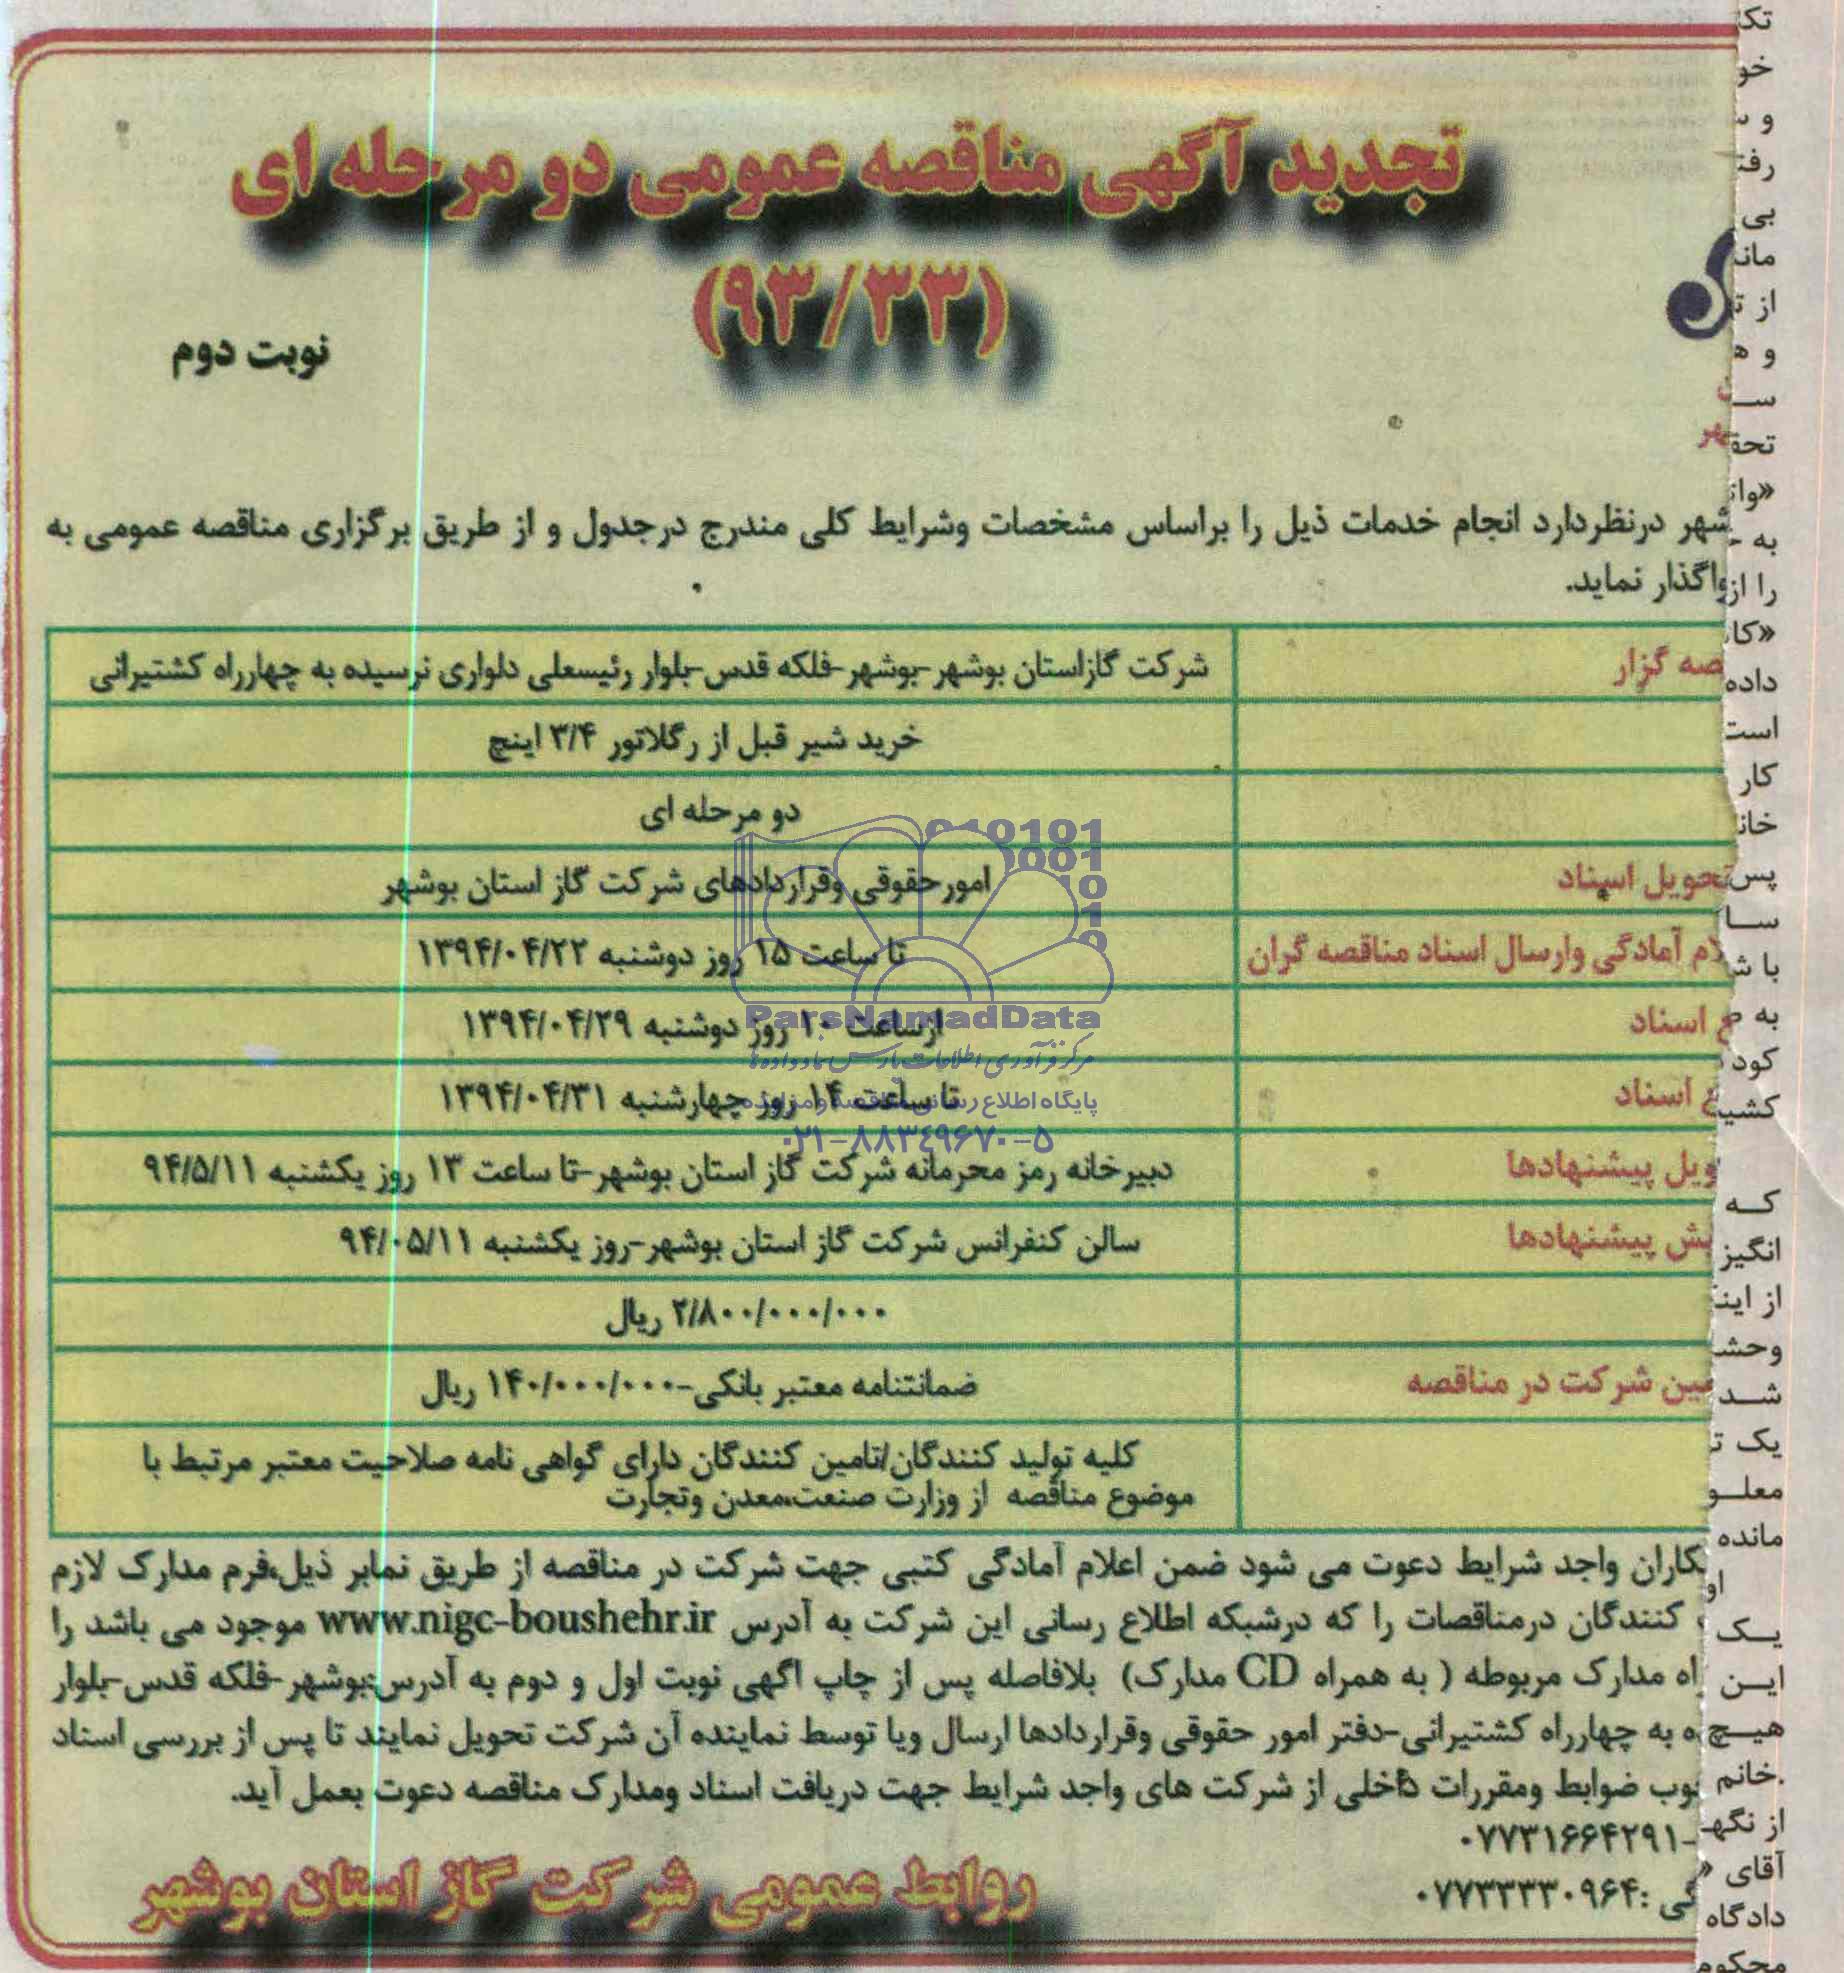 تجدید آگهی مناقصه عمومی دو مرحله ای
(۹۳/۳۳)
نوبت دوم
شهر درنظردارد انجام خدمات ذیل را براساس مشخصات وشرایط کلی مندرج درجدول و از طریق برگزاری مناقصه عمومی به
واگذار نماید.
صه گزار
شرکت گازاستان بوشهر-بوشهر-فلکه قدس-بلوار رئیسعلی دلواری نرسیده به چهارراه کشتیرانی
خرید شیر قبل از رگلاتور ۳/۴ اینچ
دو مرحله ای
تحویل اسناد
امورحقوقی وقراردادهای شرکت گاز استان بوشهر
لام آمادگی وارسال اسناد مناقصه گران
تا ساعت ۱۵ روز دوشنبه ۱۳۹۴/۰۴/۲۲
ع اسناد
ازساعت ۱۰ روز دوشنبه ۱۳۹۴/۰۴/۲۹
ع اسناد
تا ساعت ۱۴ روز چهارشنبه ۱۳۹۴/۰۴/۳۱
ویل پیشنهادها
دبیرخانه رمز محرمانه شرکت گاز استان بوشهر-تا ساعت ۱۳ روز یکشنبه ۹۴/۵/۱۱
یش پیشنهادها
سالن کنفرانس شرکت گاز استان بوشهر-روز یکشنبه ۹۴/۰۵/۱۱
۲/۸۰۰/۰۰۰/۰۰۰ ریال
مین شرکت در مناقصه
ضمانتنامه معتبر بانکی-۱۴۰/۰۰۰/۰۰۰ ریال
کلیه تولید کنندگان/تامین کنندگان دارای گواهی نامه صلاحیت معتبر مرتبط با
موضوع مناقصه از وزارت صنعت،معدن وتجارت
کاران واجد شرایط دعوت می شود ضمن اعلام آمادگی کتبی جهت شرکت در مناقصه از طریق نمابر ذیل،فرم مدارک لازم
کنندگان درمناقصات را که درشبکه اطلاع رسانی این شرکت به آدرس www.nigc-boushehr.ir موجود می باشد را
اه مدارک مربوطه ( به همراه CD مدارک) بلافاصله پس از چاپ آگهی نوبت اول و دوم به آدرس:بوشهر-فلکه قدس-بلوار
ه به چهارراه کشتیرانی-دفتر امور حقوقی وقراردادها ارسال ویا توسط نماینده آن شرکت تحویل نمایند تا پس از بررسی اسناد
وب ضوابط ومقررات داخلی از شرکت های واجد شرایط جهت دریافت اسناد ومدارک مناقصه دعوت بعمل آید.
-۰۷۷۳۱۶۶۴۲۹۱
گی :۰۷۷۳۳۳۳۰۹۶۴
روابط عمومی شرکت گاز استان بوشهر
ParsNamadData
مرکز فرآوری اطلاعات پارس نماد داده ها
پایگاه اطلاع رسانی مناقصه و مزایده
۰۲۱-۸۸۳۴۹۶۷۰-۵
تک
خو
و
رفت
بی
مان
از
و ه
ســ
تحق
«وا
به
را از
«کا
داده
است
کار
خان
پس
ســا
با ش
به
کود
کشی
کــه
انگیز
از این
وحش
شــد
یک
معلــو
مانده
او
یــک
ایــن
هیــچ
خانم
از نگه
آقای «
دادگاه
محکوم